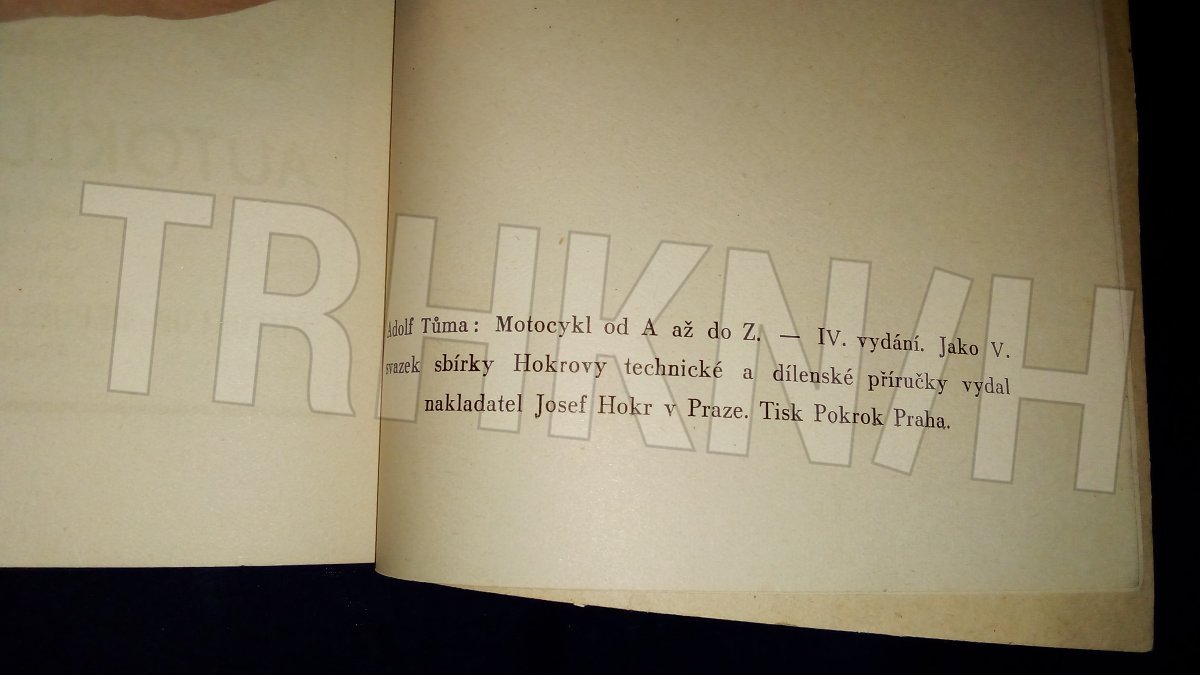 AUTOKLU
TRHKNIH
Adolf Tůma: Motocykl od A až do Z. — IV. vydání. Jako V.
svazek sbírky Hokrovy technické a dílenské příručky vydal
nakladatel Josef Hokr v Praze. Tisk Pokrok Praha.